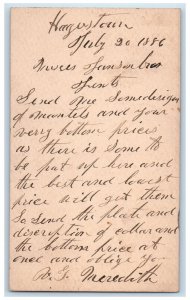 Hagerstown
July 20 1886
Gents
Send me Some designs
of mantels and your
verry bottom prices
as there is Some to
be put up here and
the best and lowest
price will get them
So send the plate and
discription of collor and
the bottom price at
onc and oblige yo
Meredith